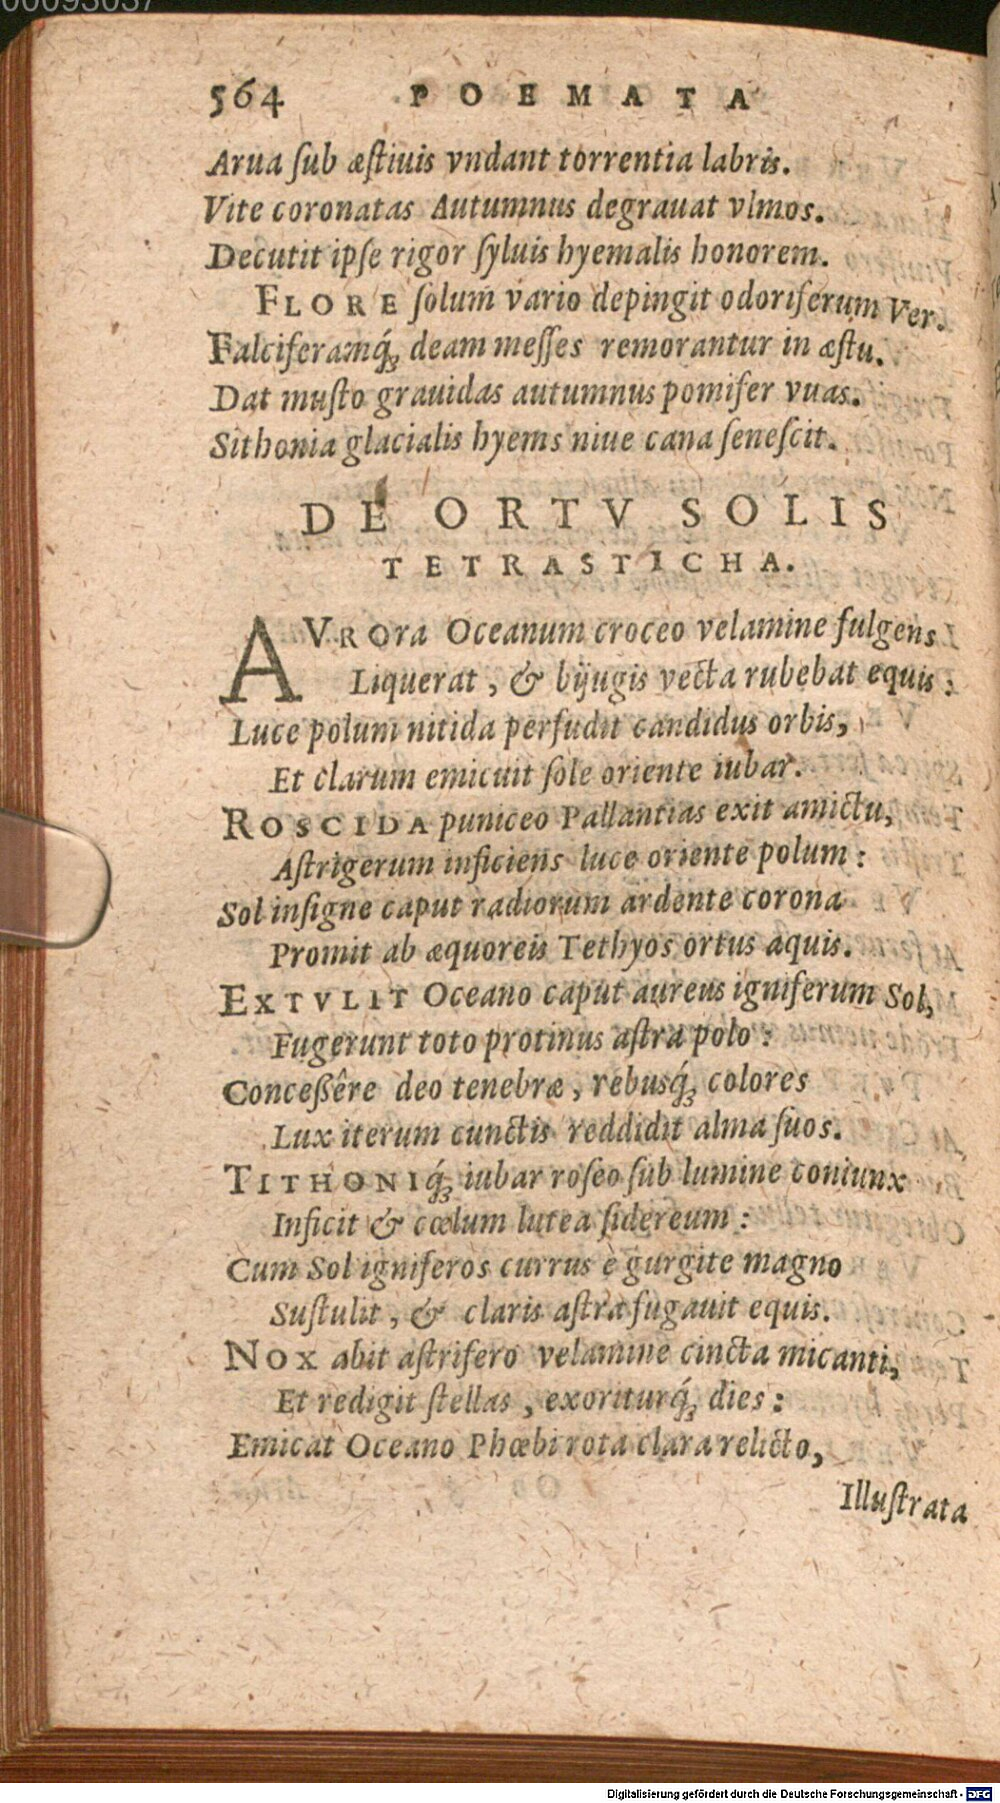 00093037
564 POEMATA
Arua ſub æſtiuis vndant torrentia labris.
Vite coronatas Autumnus degrauat vlmos.
Decutit ipſe rigor ſyluis hyemalis honorem.
FLORE ſolum vario depingit odoriferum Ver.
Falciferamq́ꝫ deam meſſes remorantur in æſtu.
Dat muſto grauidas autumnus pomifer vuas.
Sithonia glacialis hyems niue cana ſeneſcit.
DE ORTV SOLIS
TETRASTICHA.
AVRORa Oceanum croceo velamine fulgens
Liquerat, & bijugis vecta rubebat equis:
Luce polum nitida perfudit candidus orbis,
Et clarum emicuit ſole oriente iubar.
ROSCIDA puniceo Pallantias exit amictu,
Aſtrigerum inficiens luce oriente polum:
Sol inſigne caput radiorum ardente corona
Promit ab æquoreis Tethyos ortus aquis.
EXTVLIT Oceano caput aureus igniferum Sol,
Fugerunt toto protinus aſtra polo:
Conceßêre deo tenebræ, rebusq́ꝫ colores
Lux iterum cunctis reddidit alma ſuos.
TITHONIq́ꝫ iubar roſeo ſub lumine coniunx
Inficit & cœlum lutea ſidereum:
Cum Sol igniferos currus è gurgite magno
Suſtulit, & claris aſtra fugauit equis.
NOX abit aſtrifero velamine cincta micanti,
Et redigit ſtellas, exoriturq́ꝫ dies:
Emicat Oceano Phœbi rota clara relicto,
Illuſtrata
Digitalisierung gefördert durch die Deutsche Forschungsgemeinschaft - DFG